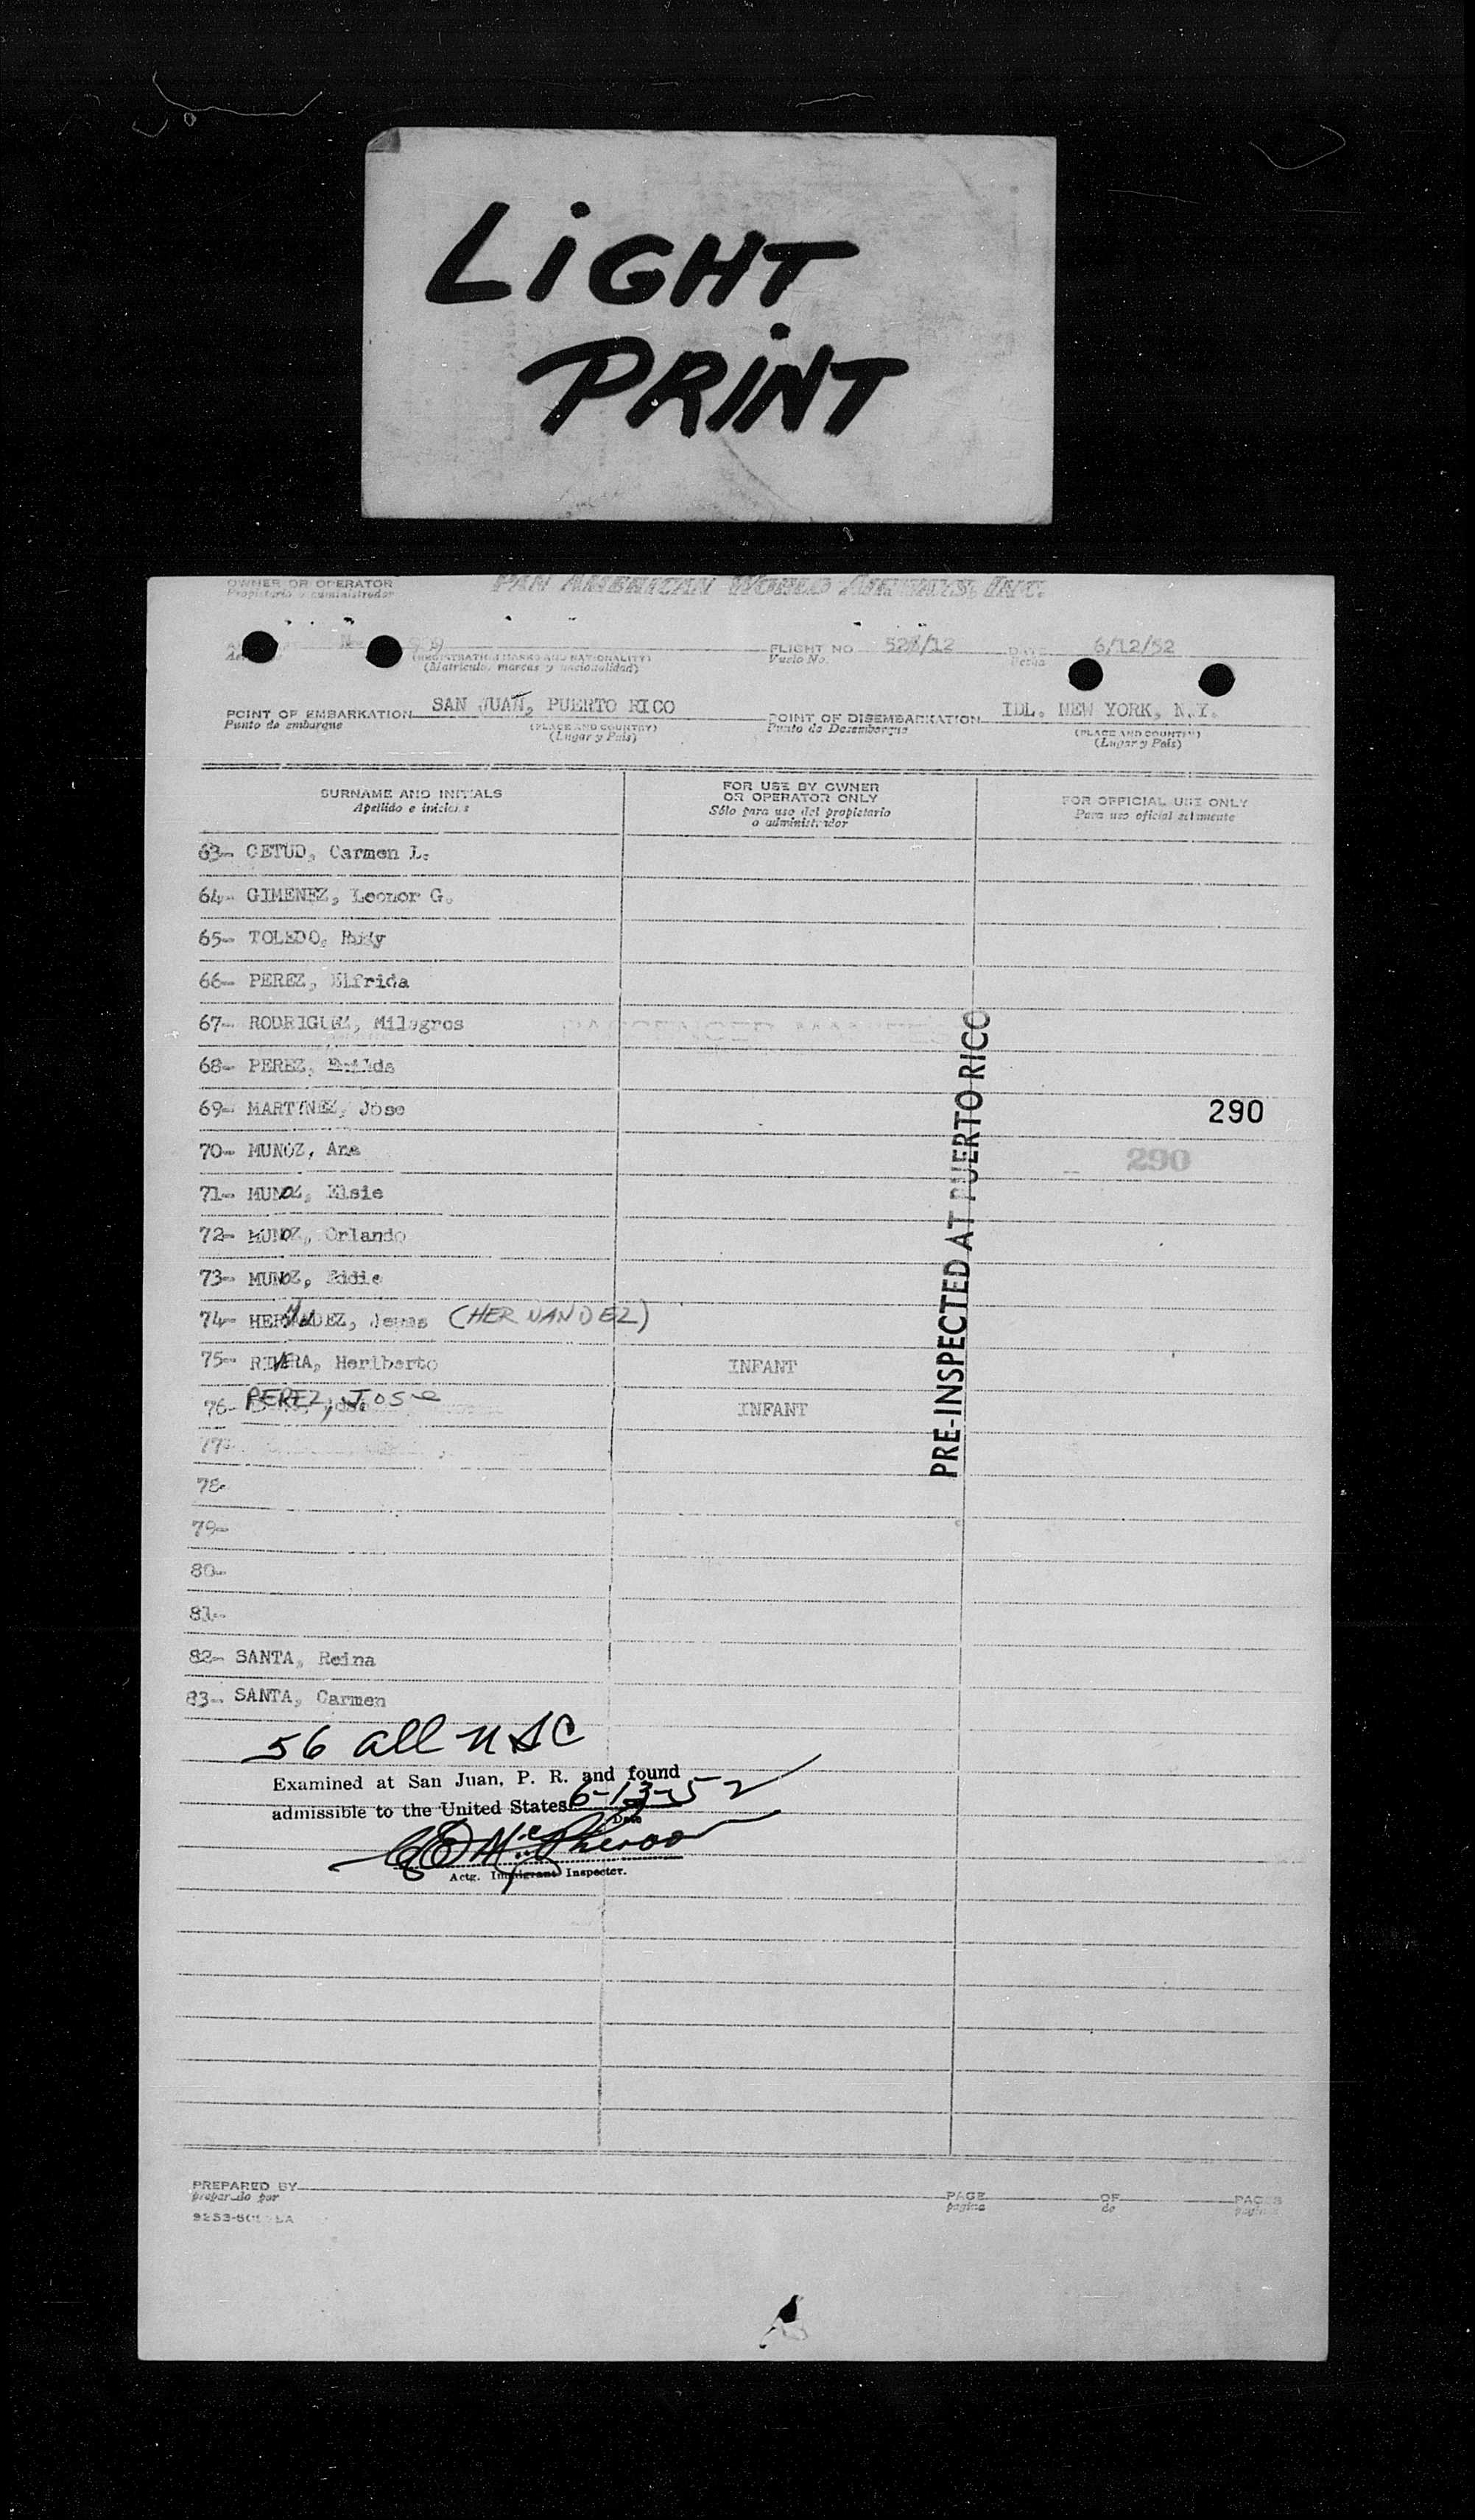 LiGHT
PRiNT
OWNER OR OPERATOR PAN AMERICAN WORLD AIRWAYS, INC.
Propietario o administrador
(REGISTRATION MARKS AND NATIONALITY)
(Matricula, marcas y nacionalidad)
FLIGHT NO. DATE 6/12/52
Vuelo No. Fecha
POINT OF EMBARKATION SAN JUAN, PUERTO RICO
Punto de embarque (PLACE AND COUNTRY)
(Lugar y Pais)
POINT OF DISEMBARKATION IDL. NEW YORK, N.Y.
Punto de Desembarque (PLACE AND COUNTRY)
(Lugar y Pais)
SURNAME AND INITIALS
Apellido e iniciales
FOR USE BY OWNER
OR OPERATOR ONLY
Sólo para uso del propietario
o administrador
FOR OFFICIAL USE ONLY
Para uso oficial solamente
63- CETUD, Carmen L.
64- GIMENEZ, Leonor G.
65- TOLEDO, Rudy
66- PEREZ, Elfrida
67- RODRIGUEZ, Milagros
68- PEREZ,
69- MARTINEZ, Jose
290
70- MUNOZ, Ana
290
71- MUNOZ, Elsie
72- MUNOZ, Orlando
73- MUNOZ, Eddie
74- HERNANDEZ, Jesus (HERNANDEZ)
75- RIVERA, Heriberto INFANT
76- PEREZ, Jose INFANT
77-
78-
79-
80-
81-
82- SANTA, Reina
83- SANTA, Carmen
PRE-INSPECTED AT PUERTO RICO
56 all USC
Examined at San Juan, P. R. and found
admissible to the United States 6-13-52
Date
Actg. Immigrant Inspector.
PREPARED BY PAGE OF PAGES
preparado por pagina de paginas